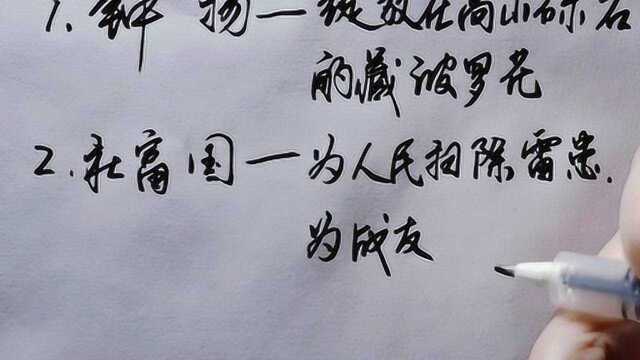 1.钟扬—绽放在高山砾石
的藏波罗花
2.杜富国—为人民扫除雷患.
为战友